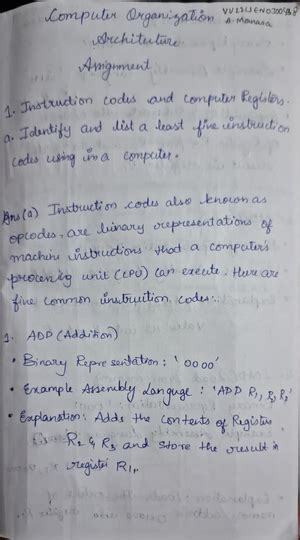 Computer Organization
A. Manasa
Archituture
Assignment
1. Instruction codes and computer Registers.
a. Identify and list a least five instruction
codes using in a computer.
Ans(a) Instruction codes also known as
opcodes, are binary representations of
machine instructions that a computer's
processing unit (CPU) can execute. Here are
five common instruction codes:
1. ADD (Addition)
• Binary Representation: '0000'
• Example Assembly Languge: 'ADD R1, R2 R3'
• Explanation: Adds the contests of Registers
R2 & R3 and store the result in
register R1,.